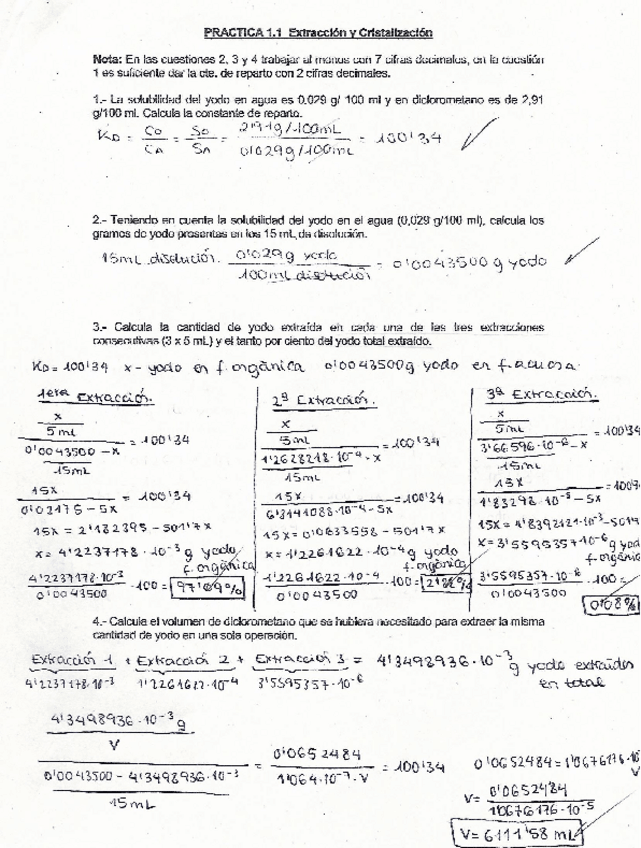 PRACTICA 1.1 Extracción y Cristalización
Nota: En las cuestiones 2, 3 y 4 trabajar al menos con 7 cifras decimales, en la cuestión
1 es suficiente dar la cte. de reparto con 2 cifras decimales.
1.- La solubilidad del yodo en agua es 0.029 g/ 100 ml y en diclorometano es de 2,91
g/100 ml. Calcula la constante de reparto.
KD = Co/CA = So/SA = 2'91g/100mL / 0'029g/100mL = 100'34
2.- Teniendo en cuenta la solubilidad del yodo en el agua (0,029 g/100 ml), calcula los
gramos de yodo presentes en los 15 mL de disolución.
15mL disolución · 0'029g yodo / 100mL disolución = 0'0043500 g yodo
3.- Calcula la cantidad de yodo extraída en cada una de las tres extracciones
consecutivas (3 x 5 mL) y el tanto por ciento del yodo total extraído.
KD = 100'34 x - yodo en f. orgánica 0'0043500g yodo en f. acuosa.
1era Extracción.
x / 5mL / 0'0043500 - x / 15mL = 100'34
15x / 0'02175 - 5x = 100'34
15x = 2'182395 - 501'7x
x = 4'2237178·10-3 g yodo
f. orgánica
4'2237178·10-3 / 0'0043500 ·100 = 97'09%
2ª Extracción.
x / 5mL / 1'2628218·10-4 - x / 15mL = 100'34
15x / 6'3141088·10-4 - 5x = 100'34
15x = 0'0633558 - 501'7x
x = 1'2261622·10-4 g yodo
f. orgánica
1'2261622·10-4 / 0'0043500 ·100 = 2'82%
3ª Extracción.
x / 5mL / 3'66596·10-6 - x / 15mL = 100'34
15x / 1'83298·10-5 - 5x = 100'34
15x = 1'8392121·10-3 - 501'
x = 3'5595357·10-6 g yodo
f. orgánica
3'5595357·10-6 / 0'0043500 ·100 =
0'08%
4.- Calcule el volumen de diclorometano que se hubiera necesitado para extraer la misma
cantidad de yodo en una sola operación.
Extracción 1 + Extracción 2 + Extracción 3 = 4'3498936·10-3 g yodo extraídos
4'2237178·10-3 1'2261622·10-4 3'5595357·10-6 en total
4'3498936·10-3 g / V / 0'0043500 - 4'3498936·10-3 / 15mL = 0'0652484 / 1'064·10-7·V = 100'34
0'0652484 = 1'0676176·10
V
V = 0'0652484 / 1'0676176·10-5
V = 6111'58 mL